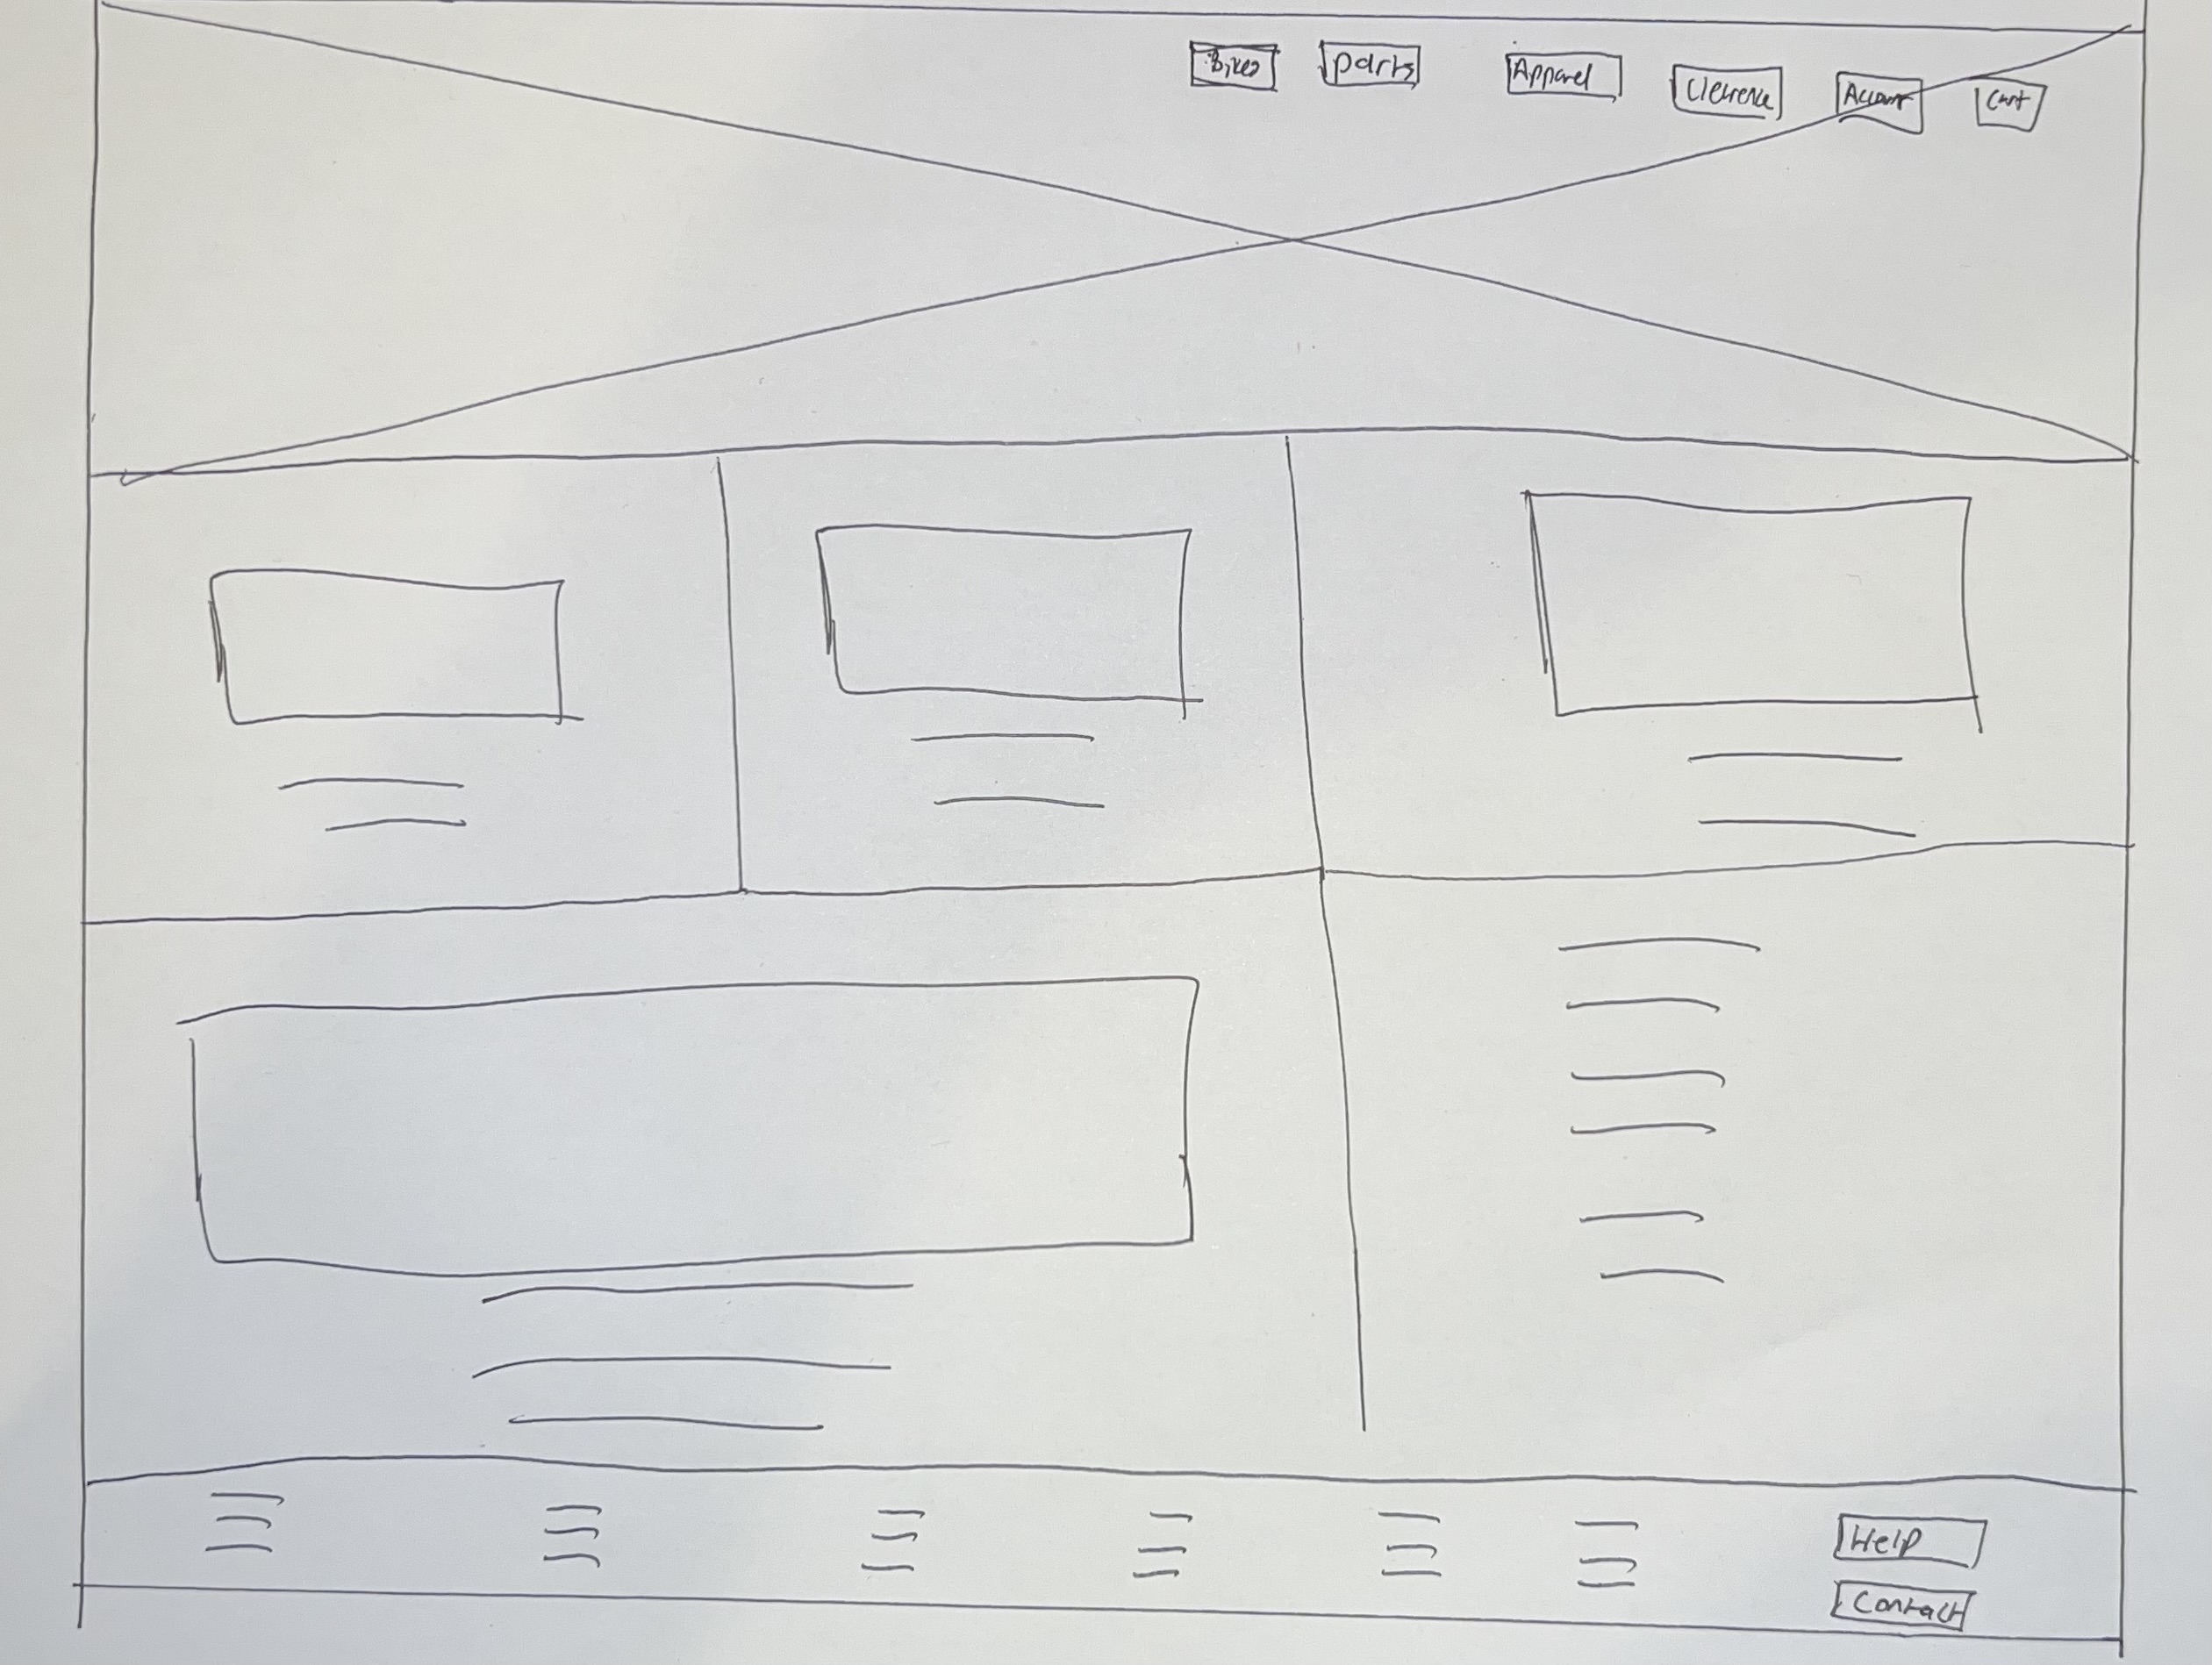 Bikes
parts
Apparel
Clerence
Account
Cart
Help
Contact